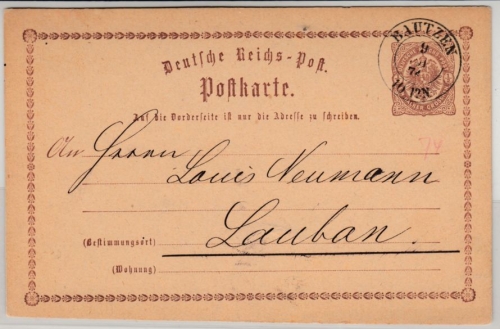 BAUTZEN
9
74
10-12N.
Deutsche Reichs-Post.
Postkarte.
Auf die Vorderseite ist nur die Adresse zu schreiben.
An Herrn
74
Louis Neumann
(Bestimmungsort) Lauban.
(Wohnung)